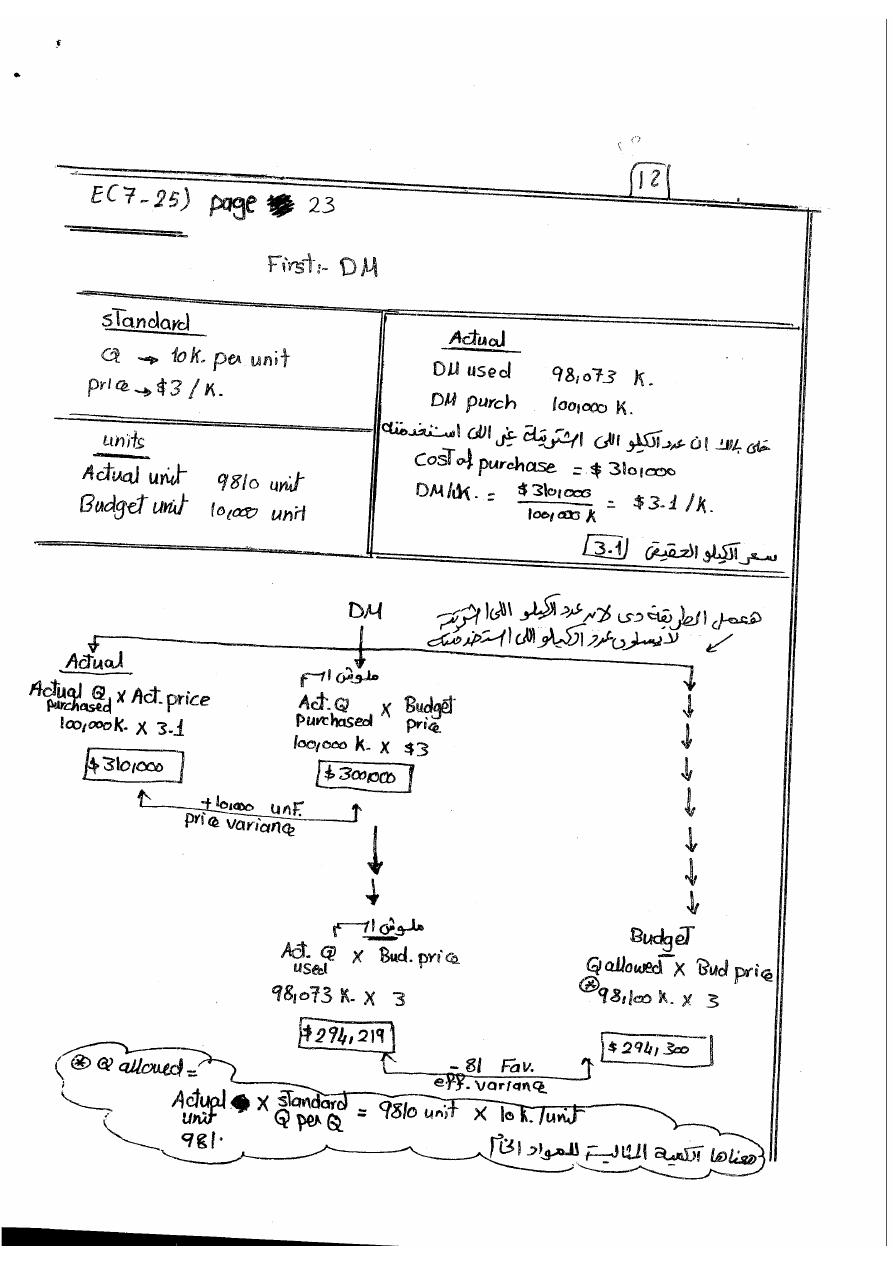 12
E(7-25) page 23
First:- DM
standard
Q → 10 K. per unit
price → $3 / K.
units
Actual unit 9810 unit
Budget unit 10,000 unit
Actual
DM used 98,073 K.
DM purch 100,000 K.
خلى بالك ان عدد الكيلو اللى اشتريته غير اللى استخدمته
Cost of purchase = $ 310,000
DM/K. = $ 310,000 / 100,000 K = $ 3.1 / K.
سعر الكيلو الحقيقى 3.1
DM
هعمل الطريقة دى لان عدد الكيلو اللى اشتريته
لا يساوى عدد الكيلو اللى استخدمته
Actual
Actual Q purchased X Act. price
100,000 K. X 3.1
$ 310,000
ملوش اسم
Act. Q purchased X Budget price
100,000 K. X $3
$ 300,000
+10,000 unF.
price variance
ملوش اسم
Act. Q used X Bud. price
98,073 K. X 3
$ 294,219
Budget
Q allowed X Bud price
* 98,100 K. X 3
$ 294,300
- 81 Fav.
eff. variance
* Q allowed =
Actual unit X standard Q per Q = 9810 unit X 10 K./unit
981.
معناها الكمية المثالية للمواد الخام